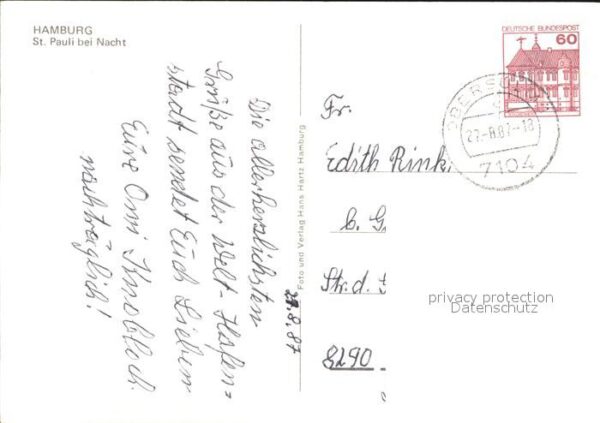 HAMBURG
St. Pauli bei Nacht
Die allerherzlichsten
Grüße aus der Welt-Hafen=
stadt sendet Euch Lieben
Eure Omi Knobloch
nachträglich!
27.8.87
Foto und Verlag Hans Hartz Hamburg
DEUTSCHE BUNDESPOST
60
27.-8.87-18
7104
Fr.
Edith Rink
b. G
Str. d.
8290
privacy protection
Datenschutz